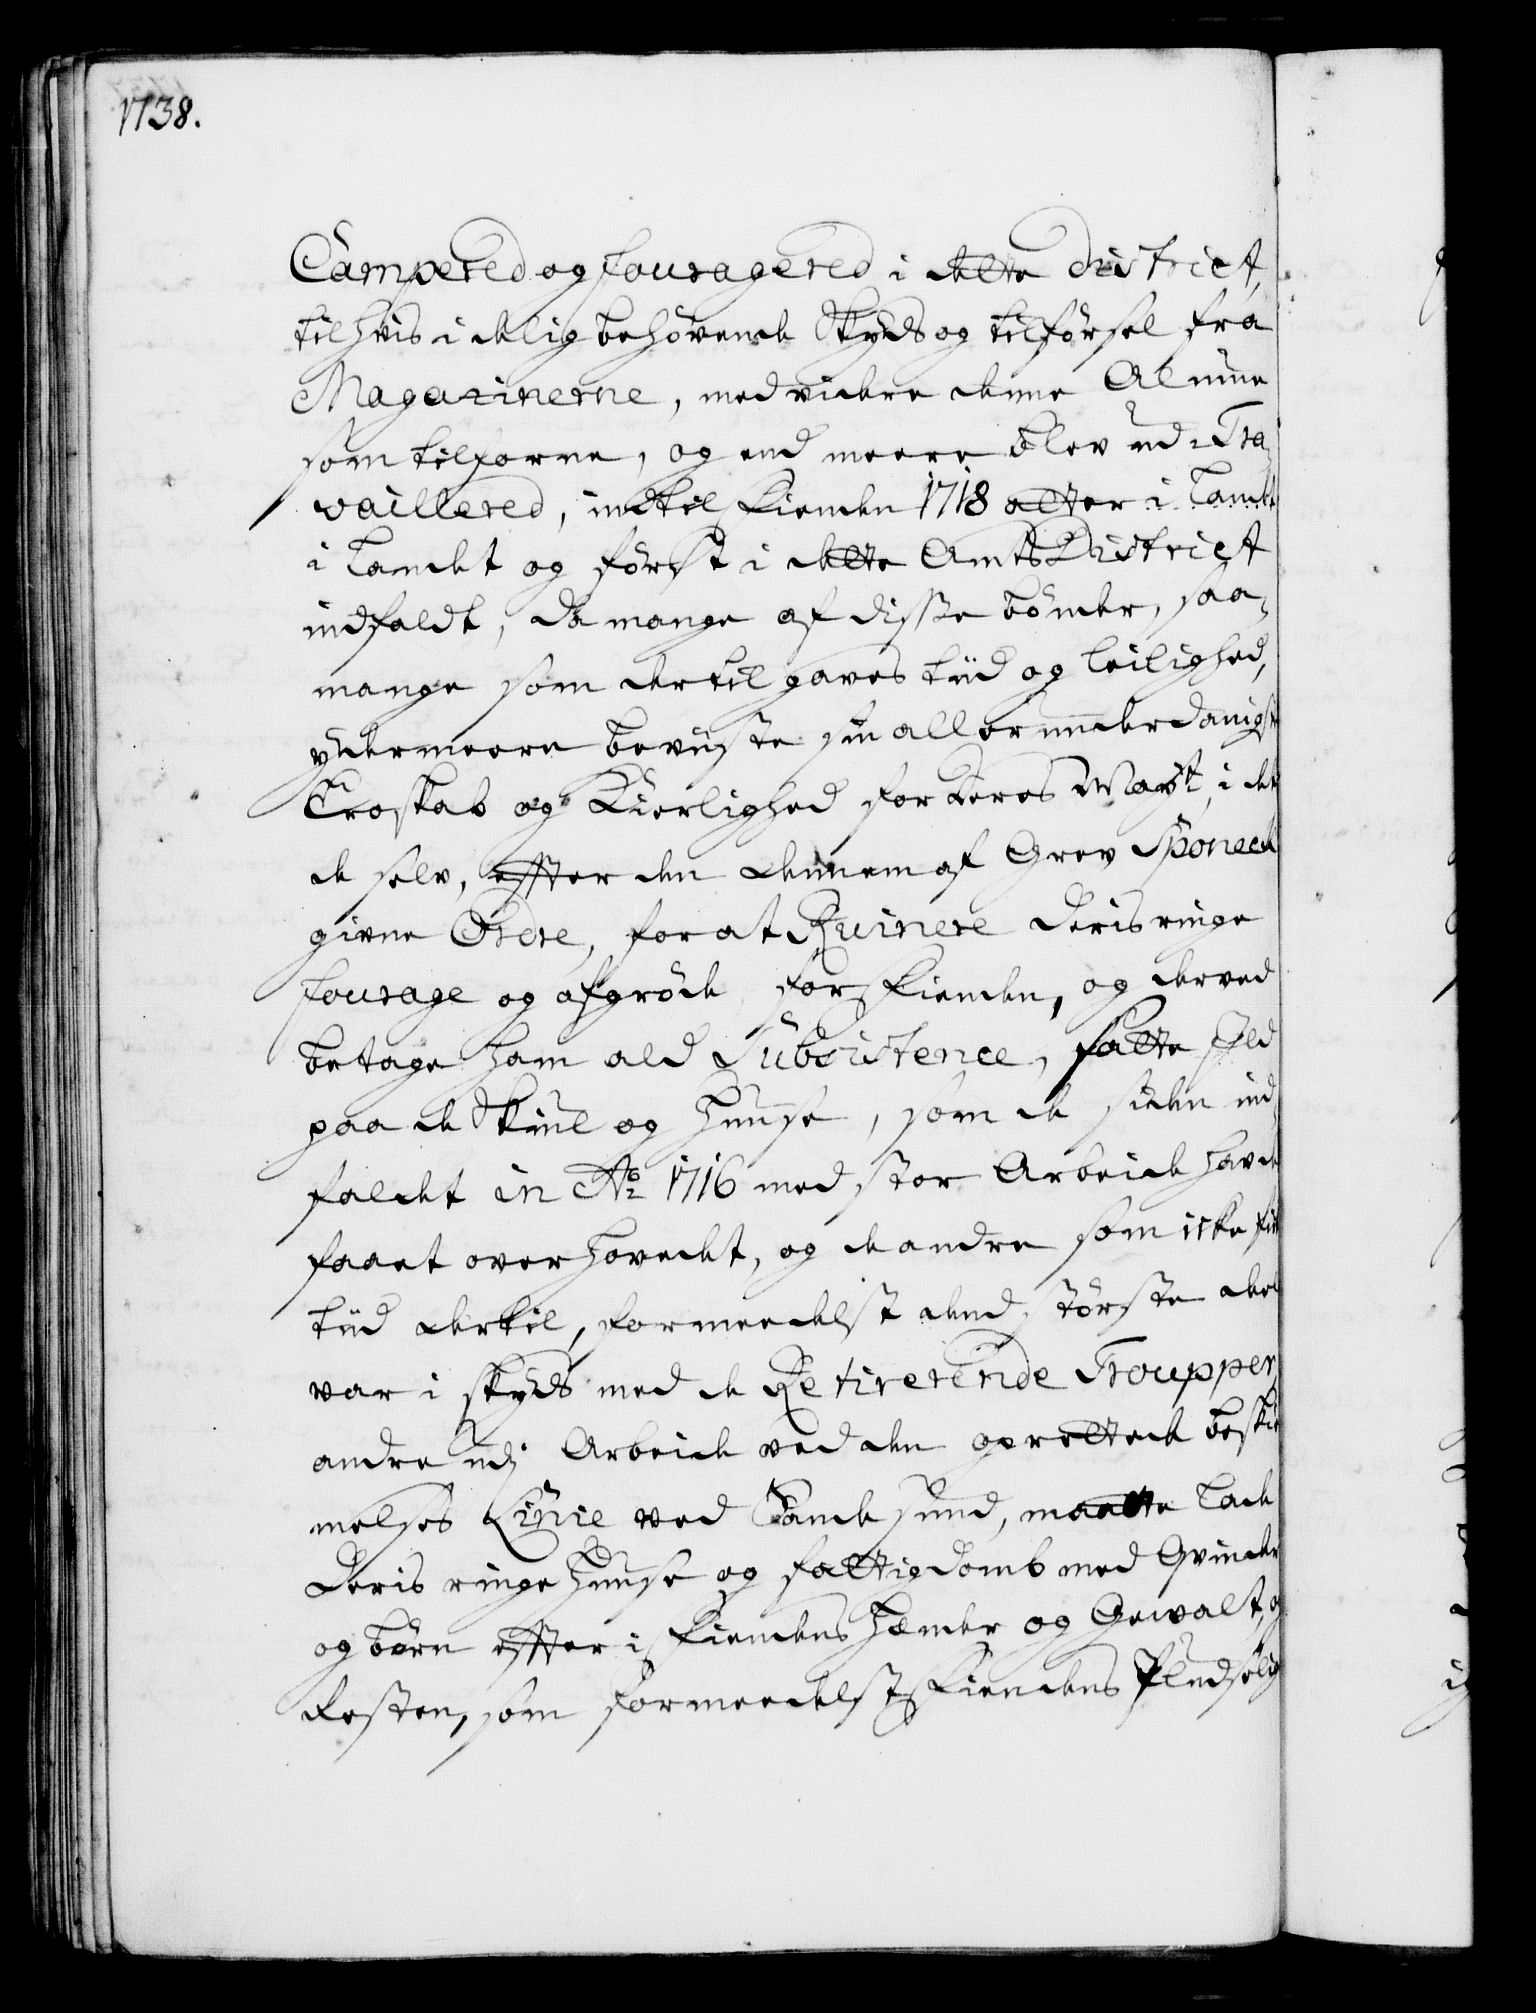 1738.
Campered og fouragered i dette District,
til hvis idelig behövende Skyds og tilförsel fra
Magazinerne, med videre denne Almue
som tilforne, og end meere blev ud-Tra
vaillered, indtil Fienden 1718 atter i Landet
i Landet og först i dette Amts District
indfaldt, da mange af disse bönder, saa-
mange som dertil gaves tiid og leilighed,
ydermeere beviiste sin allerunderdanigste
Troskab og Kierlighed for Deres Mayst, i det
de selv, effter den dennem af Grev Sponeck
givne Ordre, for at Ruinere deris ringe
fourage og afgröde for Fienden, og derved
betage ham ald Subsistence, satte Ild
paa de Skiul og Huuse, som de siden ind
faldet in Ao 1716 med stor Arbeide havde
faaet over hovedet, og de andre som icke fik
tiid dertil, formeedelst dend störste deel
var i skyds med de Retirerende Troupper,
andre udj Arbeide ved den oprettede beskier
melses Linie ved Sande sund, maatte lade
Deris ringe huuse og fattigdomb med Qvinder
og börn effter i Fiendens Hænder og Gewalt, og
Resten, som formeedelst Fiendens Pludselig